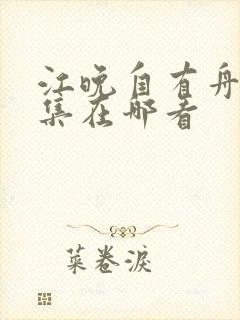 江晚自有舟
集在哪看
菜卷淚